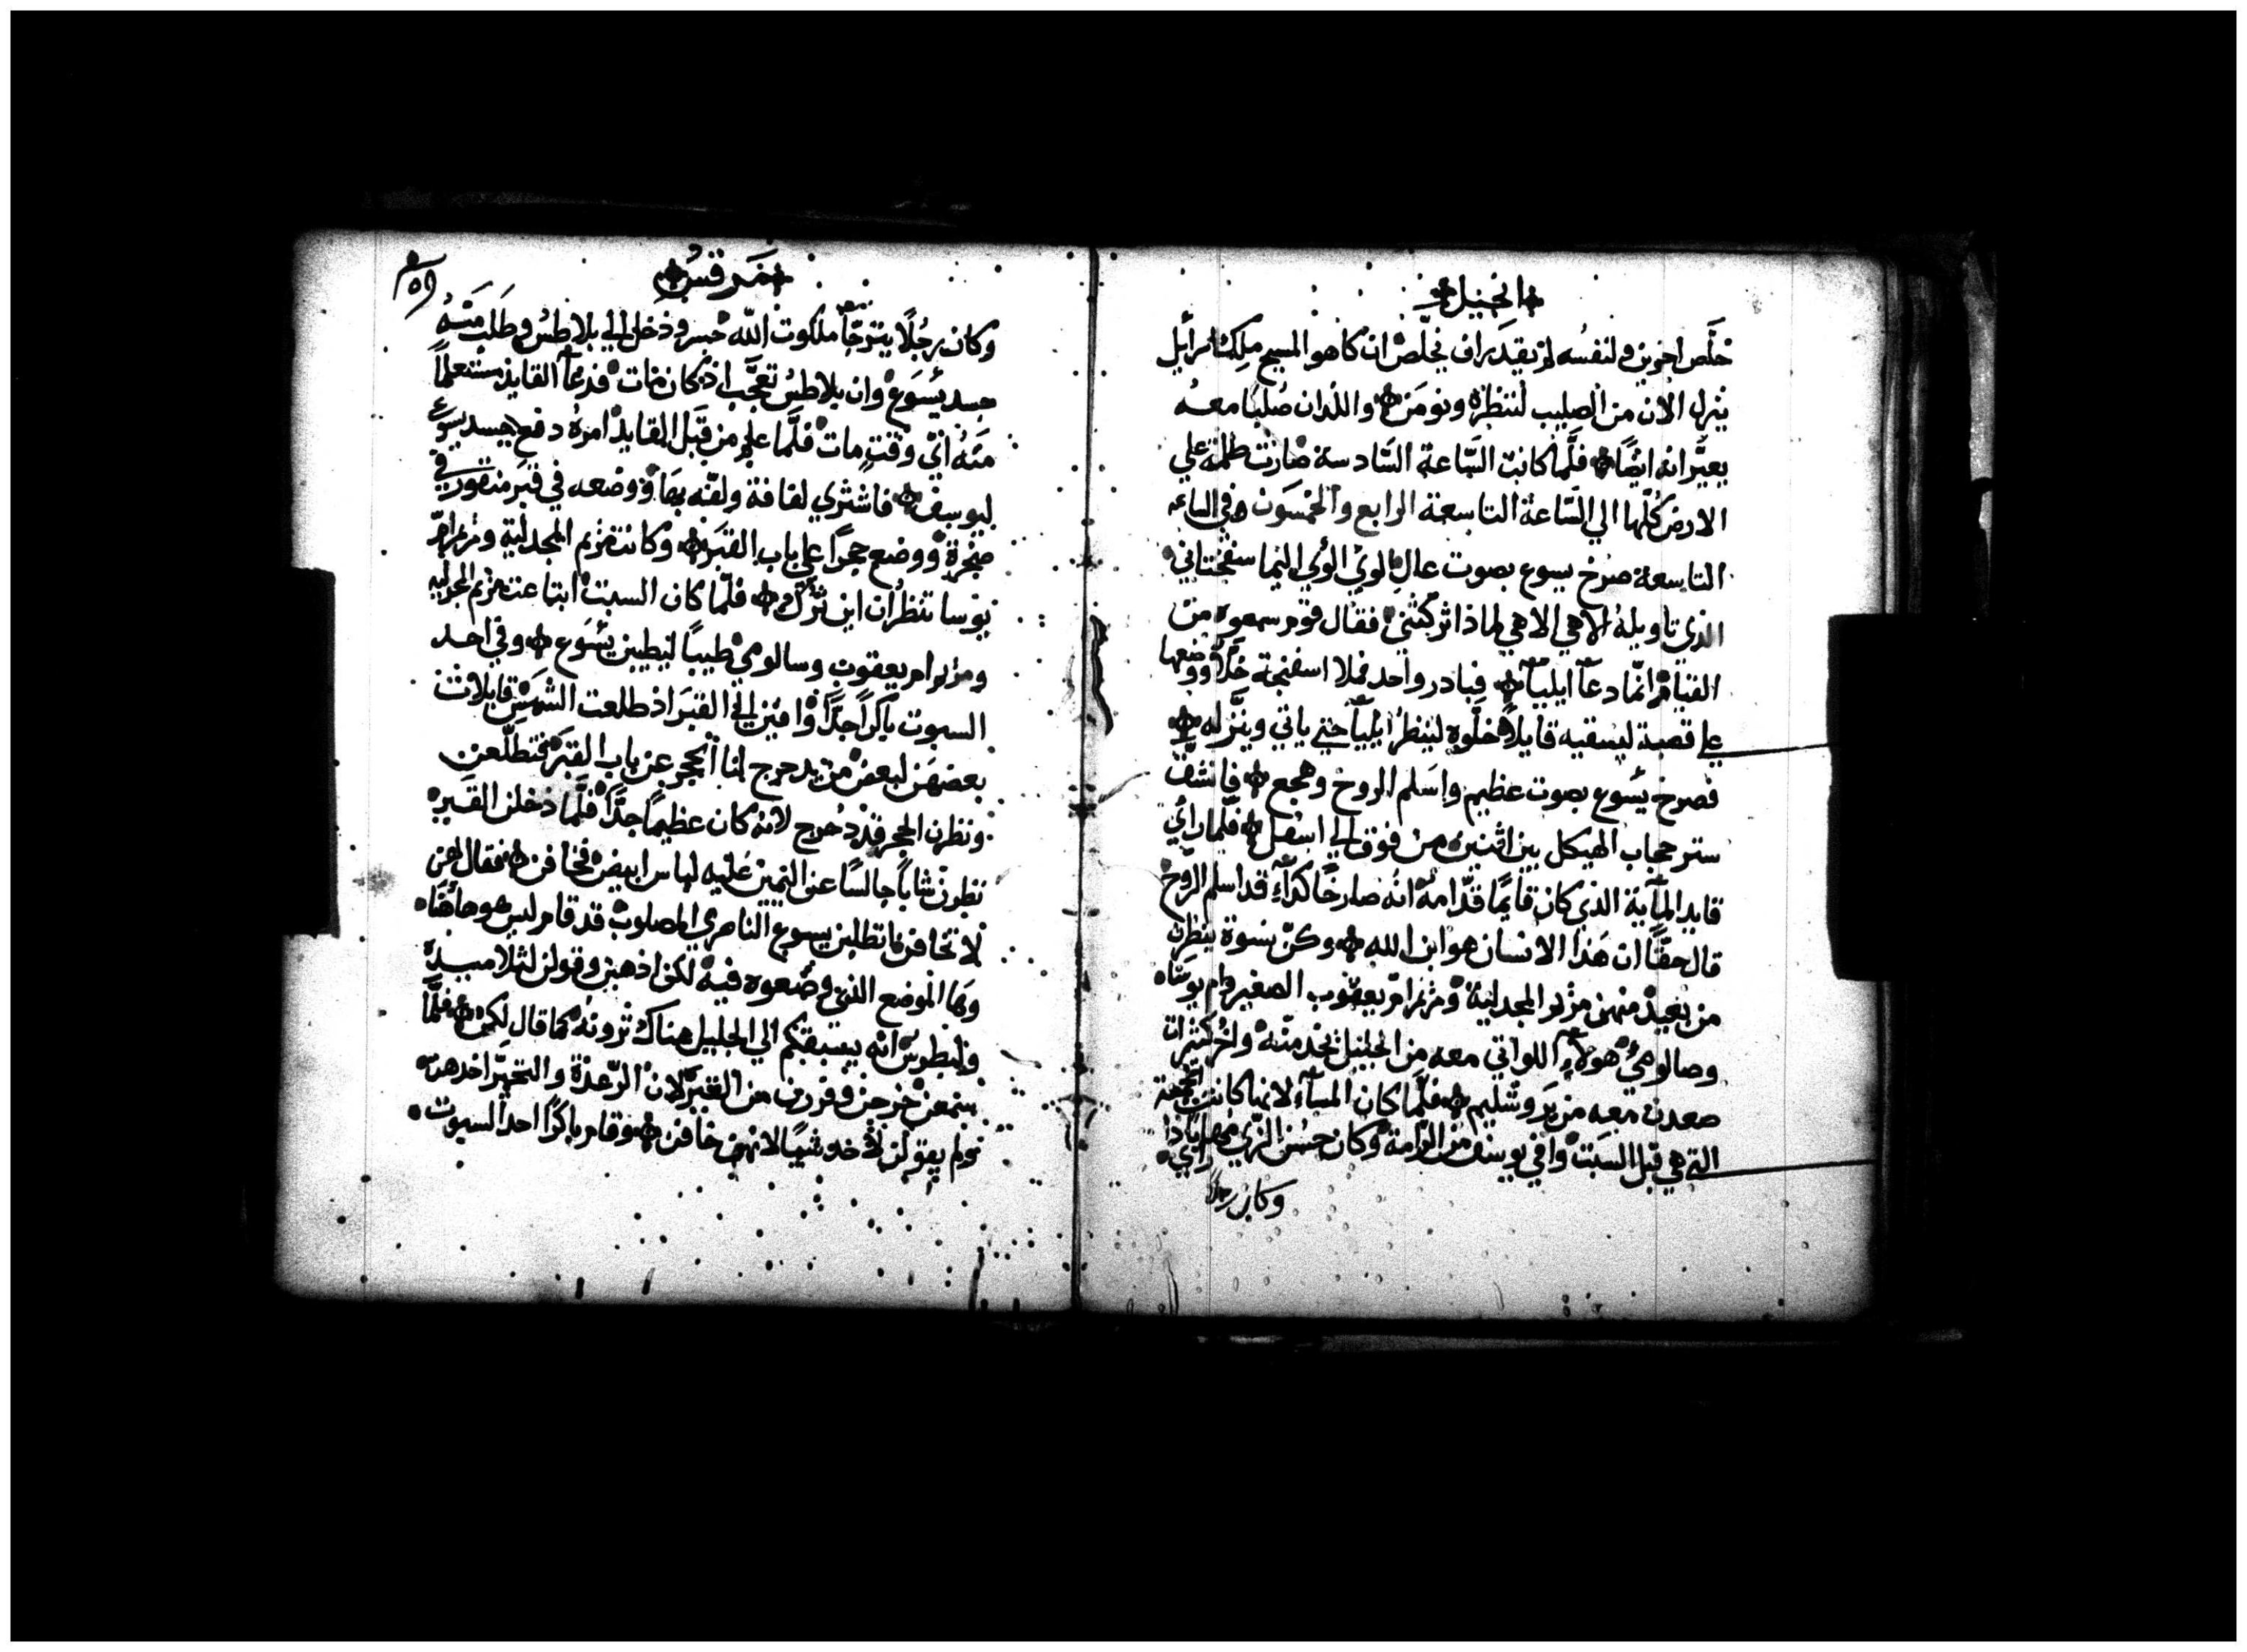 انجيل
خلّص اخرين ولنفسه لم يقدر ان يخلّص ان كان هو المسيح ملك اسرائيل
ينزل الان من الصليب لننظره ونومن واللذان صُلبا معه
يعيّرانه ايضًا فلمّا كانت السّاعة السّادسة صارت ظلمة علي
الارض كلّها الي السّاعة التاسعة الرابع والخمسون وفي الساعه
التاسعة صرخ يسوع بصوت عالٍ الوي الوي اليما سفختاني
الذي تاويله الاهي الاهي لماذا تركتني فقال قوم سمعوه من
القيام انّما دعا ايليآ فبادر واحد فملا اسفنجة خلًا ووضعها
علي قصبة ليسقيه قايلاً خلّوه لينظر ايليآ حتي ياتي وينزّله
فصرخ يسوع بصوت عظيم واسلم الروح وهجع فانشقّ
ستر حجاب الهيكل بين اثنين من فوق الي اسفل فلمّا رأي
قايد المآية الذي كان قايمًا قدّامه انه صارخًا كذآءِ قد اسلم الرّوح
قال حقًّا ان هذا الانسان هو ابن الله وكنّ نسوة ينظرن
من بعيد منهن مريم المجدلية ومريم امّ يعقوب الصغير وام يوسا
وصالومي هولآءِ اللواتي معه من الجليل يخدمنّه واُخر كثيرات
صعدن معه من يروشليم فلمّا كان المسآء لانها كانت الجمعة
التي هي قبل السبت وافي يوسف من الرامة وكان حسن الزي
وكان رجلا
مرقس
وكان رجُلًا يترجّآ ملكوت الله جسر ودخل الي بلاطس وطلب منه
جسد يسوع وان بلاطس تعجّب اذ كان مات فدعآ القايد مستعلمًا
منه ايّ وقتٍ مات فلمّا علم من قبل القايد امره دفع جسد يسوع
ليوسف فاشتري لفافة ولفّه بها ووضعه في قبر منقور في
صخرة ووضع حجرًا علي باب القبر وكانت مريم المجدلية ومريم امّ
يوسا تنظران اين تُرك فلمّا كان السبت ابتاعت مريم المجدليه
ومريم ام يعقوب وسالومي طيبًا ليطيبن يسوع وفي احد
السبوت باكرًا جدًّا وافين الي القبر اذ طلعت الشمس قايلات
بعضهن لبعض من يدحرج لنا الحجر عن باب القبر فتطلّعن
ونظرن الحجر قد دُحرج لانه كان عظيمًا جدًّا فلمّا دخلن القبر
نظرن شابًا جالسًا عن اليمين عليه لباس ابيض فخافن فقال لهن
لا تخافن ما تطلبن يسوع الناصري المصلوب قد قام ليس هو هاهنا
وها الموضع الذي وضعوه فيه لكن اذهبن وقولن لتلاميذه
ولبطرس انه يسبقكم الي الجليل هناك ترونه كما قال لكم فلمّا
سمعن خرجن وفررن من القبر لان الرّعدة والتحيّر اخذهن
ولم يقولن لاحد شيًا لانهن خافن وقام باكرًا احد السبوت